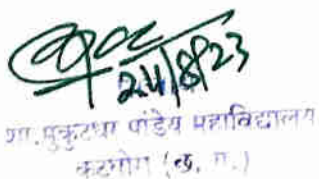 24/8/23
शा. मुकुटधर पांडेय महाविद्यालय
कटघोरा (छ. ग.)